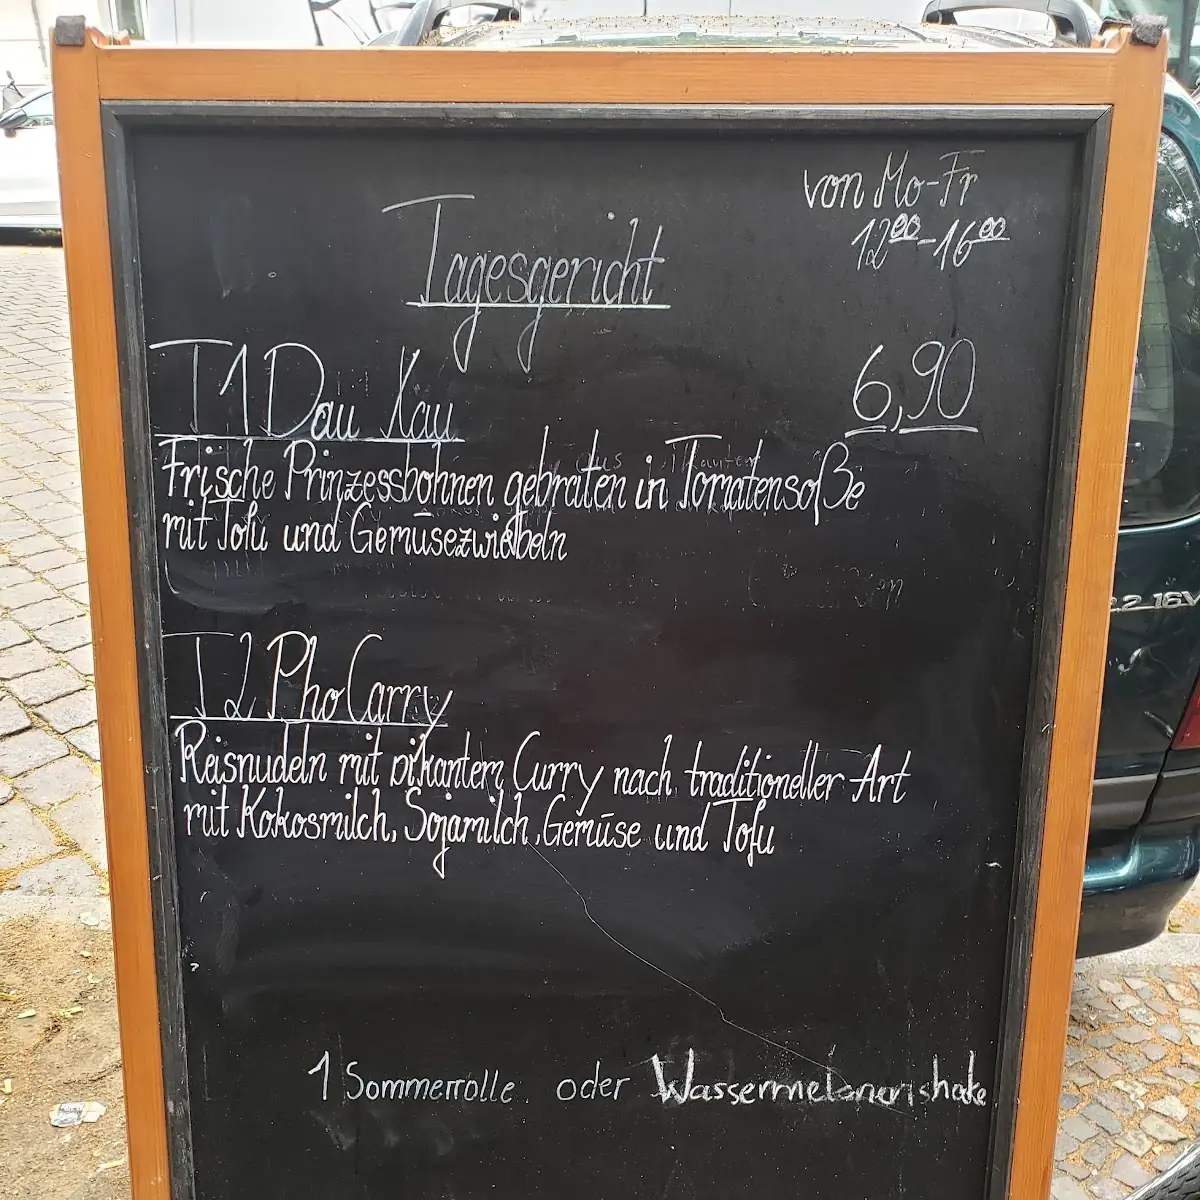 von Mo-Fr
12⁰⁰-16⁰⁰
Tagesgericht
T1 Dau Xau
6,90
Frische Prinzessbohnen gebraten in Tomatensoße
mit Tofu und Gemüsezwiebeln
T2 Pho Carry
Reisnudeln mit pikantem Curry nach traditioneller Art
mit Kokosmilch, Sojamilch, Gemüse und Tofu
1 Sommerrolle oder Wassermelonenshake
2.2 16V